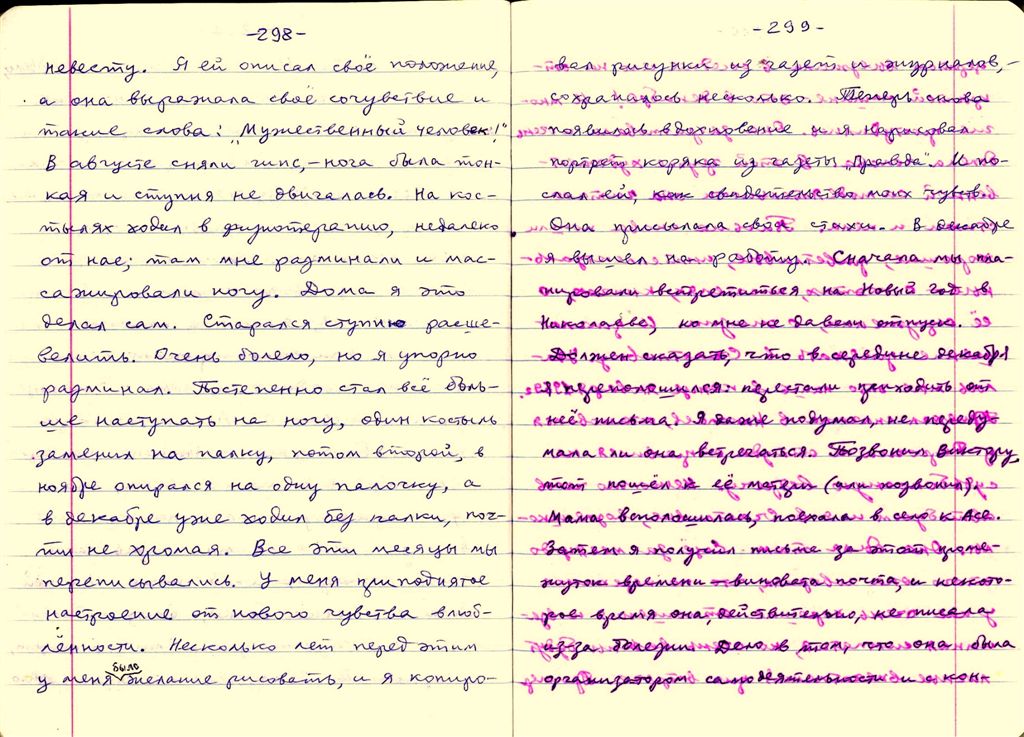 -298-
невесту. Я ей описал своё положение,
а она выражала своё сочувствие и
такие слова: „Мужественный человек!"
В августе сняли гипс, – нога была тон-
кая и ступня не двигалась. На кос-
тылях ходил в физиотерапию, недалеко
от нас; там мне разминали и мас-
сажировали ногу. Дома я это
делал сам. Старался ступню расше-
велить. Очень болело, но я упорно
разминал. Постепенно стал всё боль-
ше наступать на ногу, один костыль
заменил на палку, потом второй, в
ноябре опирался на одну палочку, а
в декабре уже ходил без палки, поч-
ти не хромая. Все эти месяцы мы
переписывались. У меня приподнятое
настроение от нового чувства влюб-
лённости. Несколько лет перед этим
у меня было желание рисовать, и я копиро-
-299-
вал рисунки из газет и журналов, –
сохранилось несколько. Теперь снова
появилось вдохновение и я нарисовал
портрет коряка из газеты „Правда". И по-
слал ей, как свидетельство моих чувств.
Она присылала свои стихи. В декабре
я вышел на работу. Сначала мы пла-
нировали встретиться на Новый год в
Николаеве, но мне не давали отпуск.
Должен сказать, что в середине декабря
я переполошился: перестали приходить от
неё письма. Я даже подумал, не переду-
мала ли она встречаться. Позвонил Виктору,
этот пошёл к её матери (или позвонил).
Мама всполошилась, поехала в село к Асе.
Затем я получил письма за этот проме-
жуток времени – виновата почта, и некото-
рое время она, действительно, не писала
из-за болезни. Дело в том, что она была
организатором самодеятельности и с кон-